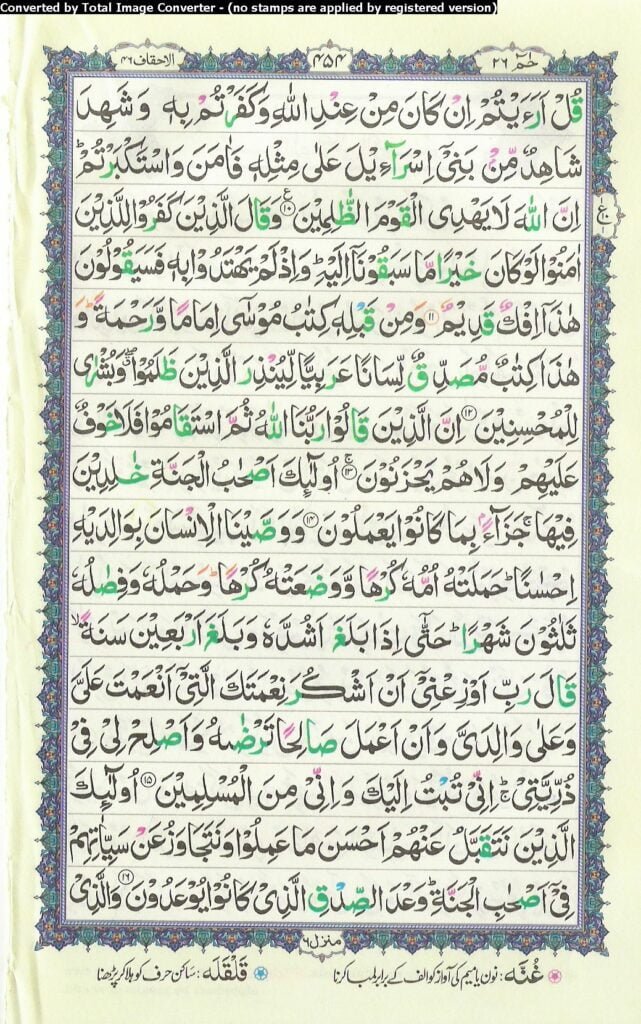 Converted by Total Image Converter - (no stamps are applied by registered version)
حٰمٓ ٢٦
٤٥٤
الاحقاف ٤٦
قُلْ اَرَءَيْتُمْ اِنْ كَانَ مِنْ عِنْدِ اللّٰهِ وَكَفَرْتُمْ بِهٖ وَشَهِدَ
شَاهِدٌ مِّنْۢ بَنِىْۤ اِسْرَآءِيْلَ عَلٰى مِثْلِهٖ فَاٰمَنَ وَاسْتَكْبَرْتُمْؕ
اِنَّ اللّٰهَ لَا يَهْدِى الْقَوْمَ الظّٰلِمِيْنَ ۧ‏ ١٠ وَقَالَ الَّذِيْنَ كَفَرُوْا لِلَّذِيْنَ
اٰمَنُوْا لَوْ كَانَ خَيْرًا مَّا سَبَقُوْنَاۤ اِلَيْهِؕ وَاِذْ لَمْ يَهْتَدُوْا بِهٖ فَسَيَقُوْلُوْنَ
هٰذَاۤ اِفْكٌ قَدِيْمٌ ١١ وَمِنْ قَبْلِهٖ كِتٰبُ مُوْسٰٓى اِمَامًا وَّرَحْمَةًؕ وَ
هٰذَا كِتٰبٌ مُّصَدِّقٌ لِّسَانًا عَرَبِيًّا لِّيُنْذِرَ الَّذِيْنَ ظَلَمُوْاۖ وَبُشْرٰى
لِلْمُحْسِنِيْنَ ١٢ اِنَّ الَّذِيْنَ قَالُوْا رَبُّنَا اللّٰهُ ثُمَّ اسْتَقَامُوْا فَلَا خَوْفٌ
عَلَيْهِمْ وَلَا هُمْ يَحْزَنُوْنَۚ ١٣ اُولٰٓئِكَ اَصْحٰبُ الْجَنَّةِ خٰلِدِيْنَ
فِيْهَاۚ جَزَآءًۢ بِمَا كَانُوْا يَعْمَلُوْنَ ١٤ وَوَصَّيْنَا الْاِنْسَانَ بِوَالِدَيْهِ
اِحْسٰنًاؕ حَمَلَتْهُ اُمُّهٗ كُرْهًا وَّوَضَعَتْهُ كُرْهًاؕ وَحَمْلُهٗ وَفِصٰلُهٗ
ثَلٰثُوْنَ شَهْرًاؕ حَتّٰٓى اِذَا بَلَغَ اَشُدَّهٗ وَبَلَغَ اَرْبَعِيْنَ سَنَةًۙ
قَالَ رَبِّ اَوْزِعْنِىْۤ اَنْ اَشْكُرَ نِعْمَتَكَ الَّتِىْۤ اَنْعَمْتَ عَلَىَّ
وَعَلٰى وَالِدَىَّ وَاَنْ اَعْمَلَ صَالِحًا تَرْضٰىهُ وَاَصْلِحْ لِىْ فِىْ
ذُرِّيَّتِىْؕۚ اِنِّىْ تُبْتُ اِلَيْكَ وَاِنِّىْ مِنَ الْمُسْلِمِيْنَ ١٥ اُولٰٓئِكَ
الَّذِيْنَ نَتَقَبَّلُ عَنْهُمْ اَحْسَنَ مَا عَمِلُوْا وَنَتَجَاوَزُ عَنْ سَيِّاٰتِهِمْ
فِىْۤ اَصْحٰبِ الْجَنَّةِؕ وَعْدَ الصِّدْقِ الَّذِىْ كَانُوْا يُوْعَدُوْنَ ١٦ وَالَّذِىْ
منزل ٦
غُنَّه: نون یا میم کی آواز کو الف کے برابر لمبا کرنا
قَلْقَلَه: ساکن حرف کو ہلا کر پڑھنا